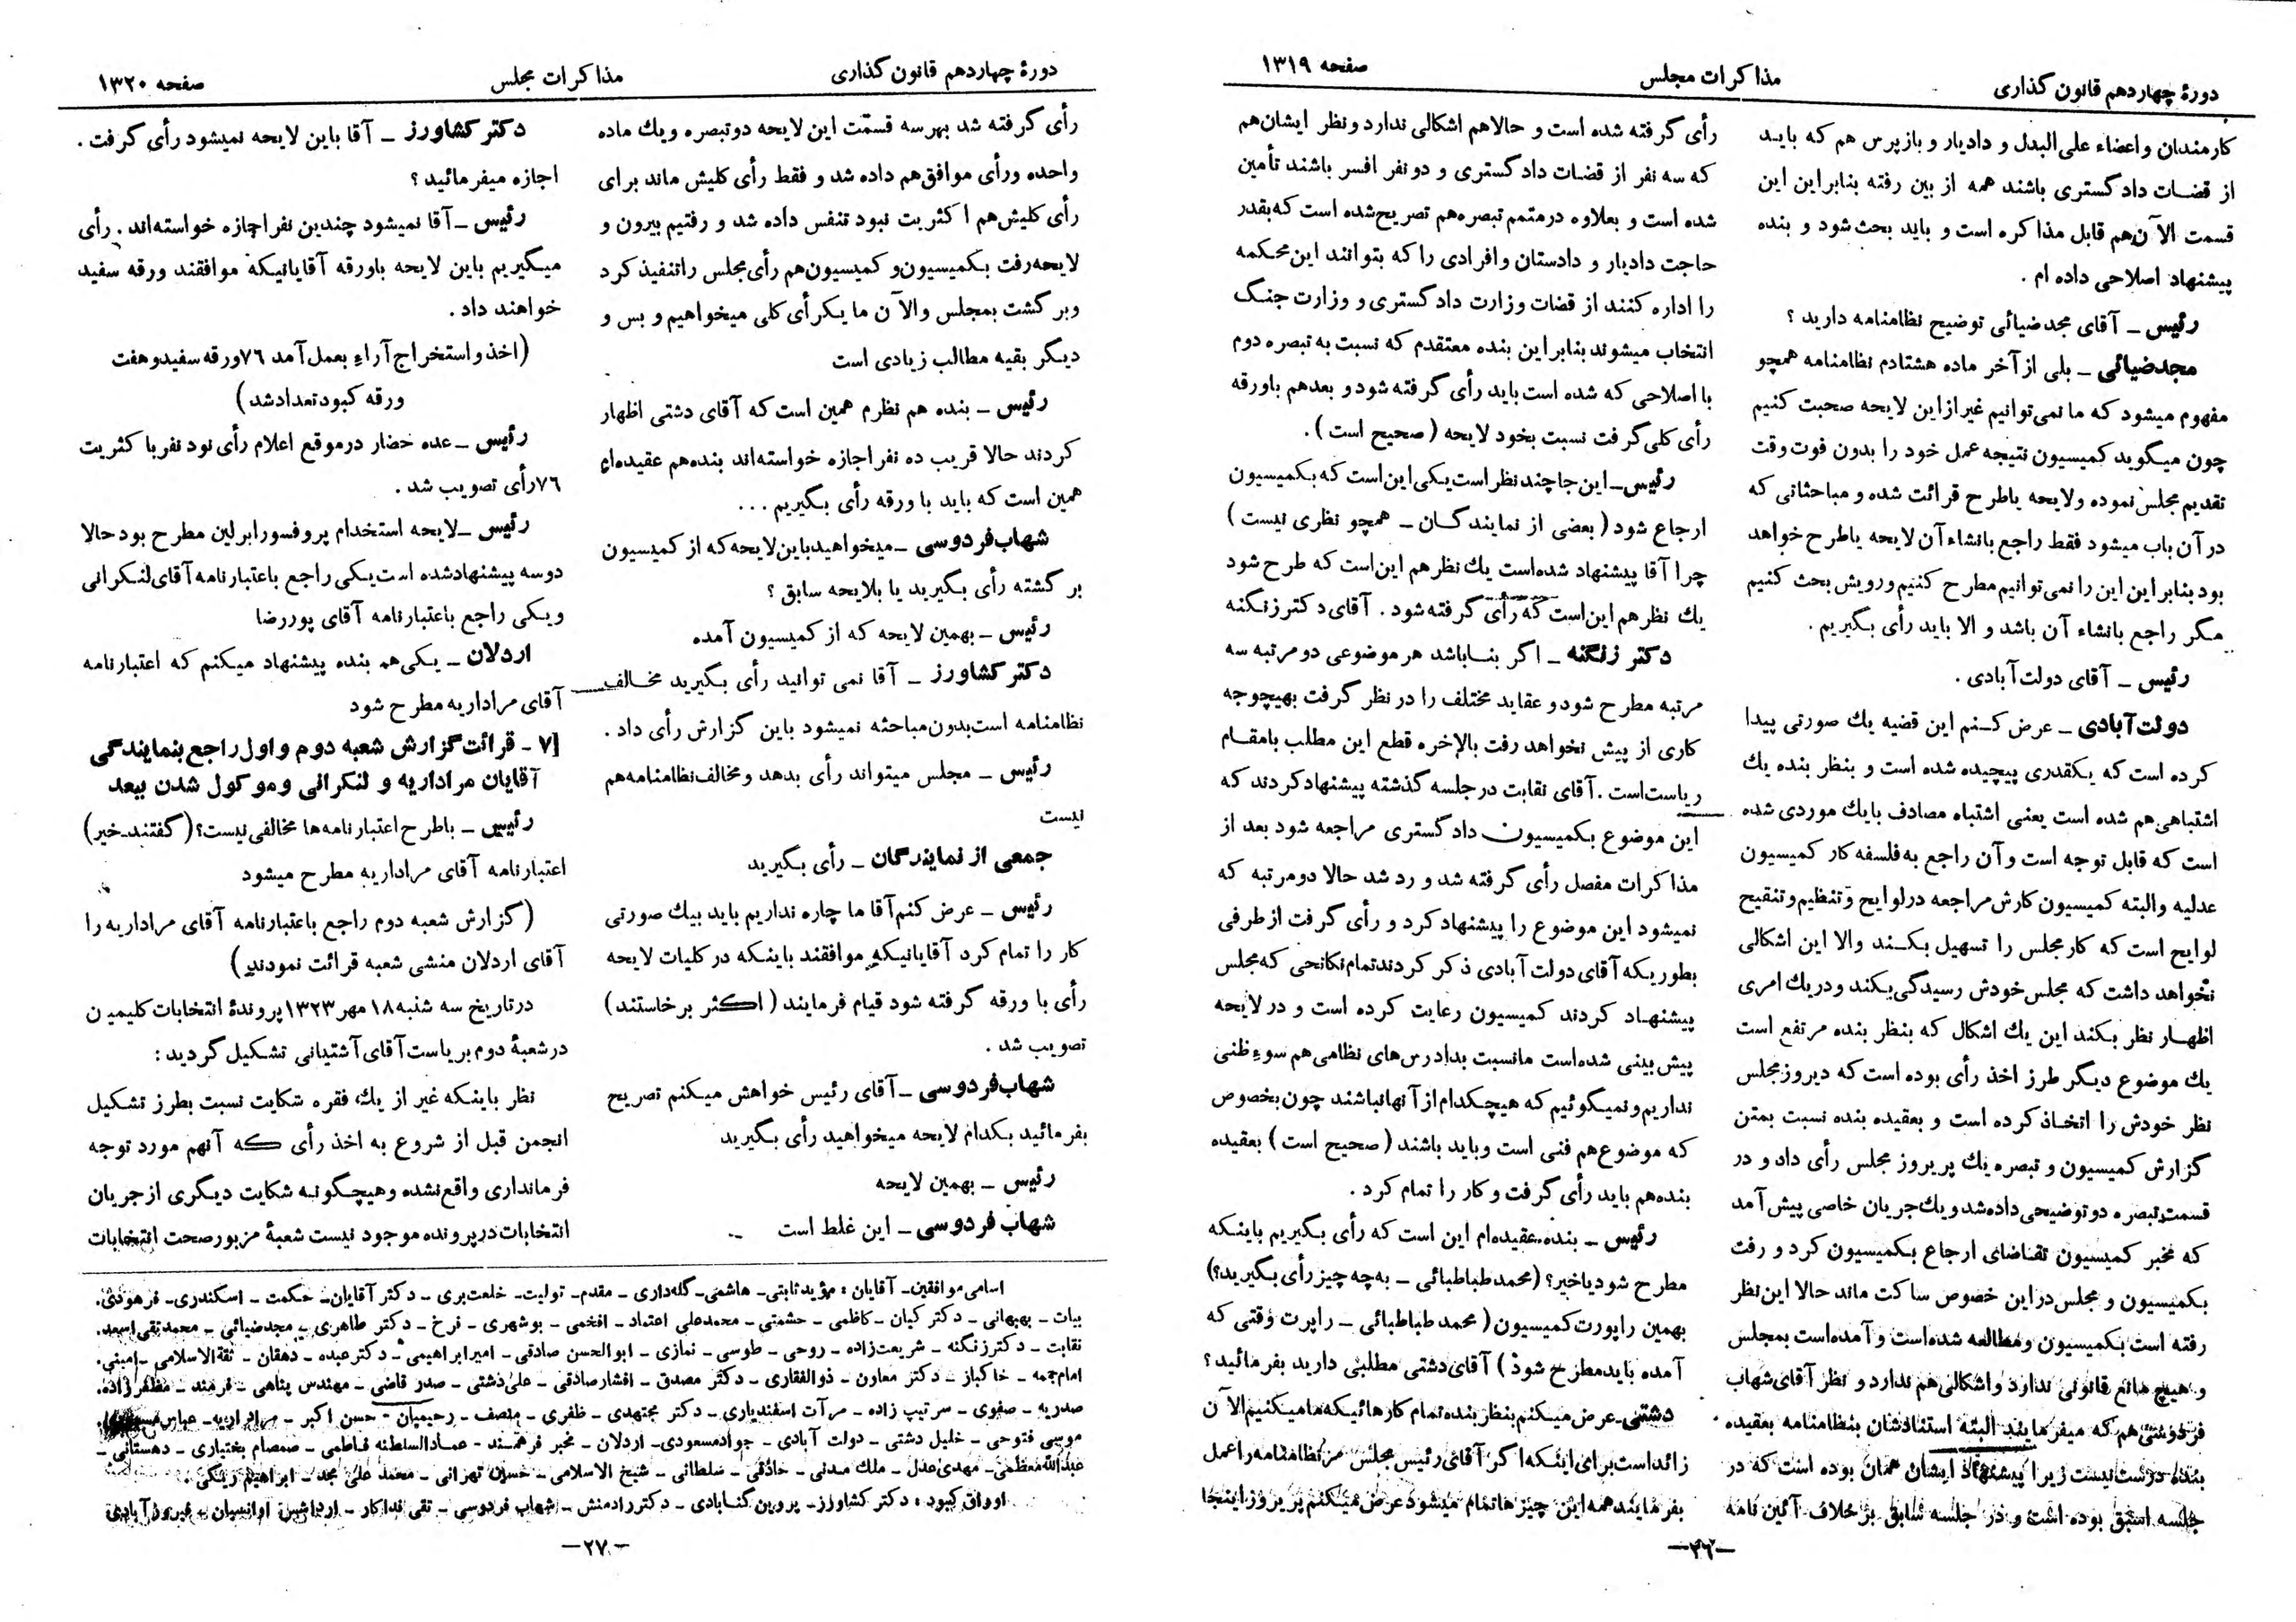 دورهٔ چهاردهم قانون گذاری
مذاکرات مجلس
صفحه ۱۳۱۹
کارمندان و اعضاء علی‌البدل و دادیار و بازپرس هم که باید
از قضات دادگستری باشند همه از بین رفته بنابراین این
قسمت الآن‌هم قابل مذاکره است و باید بحث شود و بنده
پیشنهاد اصلاحی داده ام .
رئیس ـ آقای مجدضیائی توضیح نظامنامه دارید ؟
مجدضیائی ـ بلی از آخر ماده هشتادم نظامنامه همچو
مفهوم میشود که ما نمی‌توانیم غیر از این لایحه صحبت کنیم
چون میگوید کمیسیون نتیجه عمل خود را بدون فوت وقت
تقدیم مجلس نموده و لایحه یاطرح قرائت شده و مباحثاتی که
در آن باب میشود فقط راجع بانشاء آن لایحه یاطرح خواهد
بود بنابراین این را نمی‌توانیم مطرح کنیم و رویش بحث کنیم
مگر راجع بانشاء آن باشد و الا باید رأی بگیریم .
رئیس ـ آقای دولت آبادی .
دولت‌آبادی ـ عرض کنم این قضیه یك صورتی پیدا
کرده است که یکقدری پیچیده شده است و بنظر بنده یك
اشتباهی هم شده است یعنی اشتباه مصادف بایك موردی شده
است که قابل توجه است و آن راجع به فلسفه کار کمیسیون
عدلیه والبته کمیسیون کارش مراجعه درلوایح وتنظیم وتنقیح
لوایح است که کار مجلس را تسهیل بکند والا این اشکالی
نخواهد داشت که مجلس خودش رسیدگی بکند و دریك امری
اظهار نظر بکند این یك اشکال که بنظر بنده مرتفع است
یك موضوع دیگر طرز اخذ رأی بوده است که دیروز مجلس
نظر خودش را اتخاذ کرده است و بعقیده بنده نسبت بمتن
گزارش کمیسیون و تبصره یك پریروز مجلس رأی داد و در
قسمت تبصره دو توضیحی داده شد ویك جریان خاصی پیش آمد
که مخبر کمیسیون تقاضای ارجاع بکمیسیون کرد و رفت
بکمیسیون و مجلس در این خصوص ساکت ماند حالا این نظر
رفته است بکمیسیون و مطالعه شده‌است و آمده‌است بمجلس
و هیچ مانع قانونی ندارد و اشکالی هم ندارد و نظر آقای شهاب
فردوسی هم که میفرمایند البته استنادشان بنظامنامه بعقیده
بنده درست نیست زیرا پیشنهاد ایشان همان بوده است که در
جلسه اسبق بوده است و در جلسه سابق برخلاف آئین نامه
رأی گرفته شده است و حالا هم اشکالی ندارد و نظر ایشان هم
که سه نفر از قضات دادگستری و دو نفر افسر باشند تأمین
شده است و بعلاوه درمتمم تبصره‌هم تصریح شده است که بقدر
حاجت دادیار و دادستان و افرادی را که بتوانند این محکمه
را اداره کنند از قضات وزارت دادگستری و وزارت جنگ
انتخاب میشوند بنابراین بنده معتقدم که نسبت به تبصره دوم
با اصلاحی که شده است باید رأی گرفته شود و بعدهم باورقه
رأی کلی گرفت نسبت بخود لایحه ( صحیح است ) .
رئیس‌ـ این جا چند نظر است یکی این است که بکمیسیون
ارجاع شود ( بعضی از نمایندگان ـ همچو نظری نیست )
چرا آقا پیشنهاد شده‌است یك نظرهم این‌است که طرح شود
یك نظرهم این‌است که رأی گرفته شود . آقای دکتر زنگنه
دکتر زنگنه ـ اگر بنا باشد هر موضوعی دو مرتبه سه
مرتبه مطرح شود و عقاید مختلف را در نظر گرفت بهیچوجه
کاری از پیش نخواهد رفت بالاخره قطع این مطلب بامقام
ریاست‌است . آقای نقابت در جلسه گذشته پیشنهاد کردند که
این موضوع بکمیسیون دادگستری مراجعه شود بعد از
مذاکرات مفصل رأی گرفته شد و رد شد حالا دومرتبه که
نمیشود این موضوع را پیشنهاد کرد و رأی گرفت از طرفی
بطوریکه آقای دولت آبادی ذکر کردند تمام نکاتی که مجلس
پیشنهاد کردند کمیسیون رعایت کرده است و در لایحه
پیش بینی شده‌است مانسبت بدادرس‌های نظامی هم سوءظنی
نداریم و نمیگوئیم که هیچکدام از آنها نباشند چون بخصوص
که موضوع هم فنی است وباید باشند ( صحیح است ) بعقیده
بنده‌هم باید رأی گرفت و کار را تمام کرد .
رئیس ـ بنده عقیده‌ام این است که رأی بگیریم باینکه
مطرح شود یا خیر؟ (محمد طباطبائی ـ به‌چه چیز رأی بگیرید؟)
بهمین راپورت کمیسیون ( محمد طباطبائی ـ راپرت وقتی که
آمده باید مطرح شود ) آقای دشتی مطلبی دارید بفرمائید ؟
دشتی‌ـ عرض میکنم بنظر بنده تمام کارهائیکه ما میکنیم الآن
زائداست برای اینکه اگر آقای رئیس مجلس مرنظامنامه را عمل
بفرمایند همه این چیزها تمام میشود عرض میکنم پریروز اینجا
ـ۲۶ـ
دورهٔ چهاردهم قانون گذاری
مذاکرات مجلس
صفحه ۱۳۲۰
رأی گرفته شد بهر سه قسمت این لایحه دو تبصره و یك ماده
واحده ورأی موافق هم داده شد و فقط رأی کلیش ماند برای
رأی کلیش هم اکثریت نبود تنفس داده شد و رفتیم بیرون و
لایحه رفت بکمیسیون و کمیسیون هم رأی مجلس راتنفیذ کرد
وبرگشت بمجلس والآن ما یك رأی کلی میخواهیم و بس و
دیگر بقیه مطالب زیادی است
رئیس ـ بنده هم نظرم همین است که آقای دشتی اظهار
کردند حالا قریب ده نفر اجازه خواسته‌اند بنده‌هم عقیده‌ام
همین است که باید با ورقه رأی بگیریم ...
شهاب‌فردوسی ـ میخواهید باین لایحه که از کمیسیون
برگشته رأی بگیرید یا بلایحه سابق ؟
رئیس ـ بهمین لایحه که از کمیسیون آمده
دکتر کشاورز ـ آقا نمی توانید رأی بگیرید مخالف
نظامنامه است بدون مباحثه نمیشود باین گزارش رأی داد .
رئیس ـ مجلس میتواند رأی بدهد و مخالف نظامنامه هم
نیست
جمعی از نمایندگان ـ رأی بگیرید
رئیس ـ عرض کنم آقا ما چاره نداریم باید بیك صورتی
کار را تمام کرد آقایانیکه موافقند باینکه در کلیات لایحه
رأی با ورقه گرفته شود قیام فرمایند ( اکثر برخاستند )
تصویب شد .
شهاب‌فردوسی ـ آقای رئیس خواهش میکنم تصریح
بفرمائید بکدام لایحه میخواهید رأی بگیرید
رئیس ـ بهمین لایحه
شهاب فردوسی ـ این غلط است
دکتر کشاورز ـ آقا باین لایحه نمیشود رأی گرفت .
اجازه میفرمائید ؟
رئیس ـ آقا نمیشود چندین نفر اجازه خواسته‌اند . رأی
میگیریم باین لایحه باورقه آقایانیکه موافقند ورقه سفید
خواهند داد .
(اخذ و استخراج آراء بعمل آمد ۷۶ ورقه سفید و هفت
ورقه کبود تعداد شد)
رئیس ـ عده حضار در موقع اعلام رأی نود نفر با کثریت
۷۶ رأی تصویب شد .
رئیس ـ لایحه استخدام پروفسور ابرلین مطرح بود حالا
دوسه پیشنهاد شده است یکی راجع باعتبارنامه آقای لنکرانی
ویکی راجع باعتبارنامه آقای پوررضا
اردلان ـ یکی هم بنده پیشنهاد میکنم که اعتبارنامه
آقای مراداریه مطرح شود
[۷ ـ قرائت گزارش شعبه دوم و اول راجع بنمایندگی
آقایان مراداریه و لنکرانی و موکول شدن ببعد
رئیس ـ باطرح اعتبارنامه‌ها مخالفی نیست؟ (گفتند‌ـ خیر)
اعتبارنامه آقای مراداریه مطرح میشود
(گزارش شعبه دوم راجع باعتبارنامه آقای مراداریه را
آقای اردلان منشی شعبه قرائت نمودند)
در تاریخ سه شنبه ۱۸ مهر ۱۳۲۳ پروندهٔ انتخابات کلیمیان
در شعبهٔ دوم بریاست آقای آشتیانی تشکیل گردید :
نظر باینکه غیر از یك فقره شکایت نسبت بطرز تشکیل
انجمن قبل از شروع به اخذ رأی که آنهم مورد توجه
فرمانداری واقع نشده وهیچگونه شکایت دیگری از جریان
انتخابات در پرونده موجود نیست شعبهٔ مزبور صحت انتخابات
اسامی موافقین‌ـ آقایان : مؤید ثابتی‌ـ هاشمی‌ـ گله‌داری ـ مقدم‌ـ تولیت‌ـ خلعت‌بری ـ دکتر آقایان‌ـ حکمت ـ اسکندری‌ـ فرهودی.
بیات ـ بهبهانی ـ دکتر کیان ـ کاظمی ـ حشمتی ـ محمدعلی اعتماد ـ افخمی ـ بوشهری ـ فرخ ـ دکتر طاهری ـ مجدضیائی ـ محمدتقی اسعد.
نقابت ـ دکتر زنگنه ـ شریعت‌زاده ـ روحی ـ طوسی ـ نمازی ـ ابوالحسن صادقی ـ امیرابراهیمی ـ دکتر عبده ـ دهقان ـ ثقةالاسلامی ـ امینی.
امام جمعه ـ خاکباز ـ دکتر معاون ـ ذوالفقاری ـ دکتر مصدق ـ افشار صادقی ـ علی‌دشتی ـ صدر قاضی ـ مهندس پناهی ـ فرمند ـ مظفرزاده.
صدریه ـ صفوی ـ سرتیپ زاده ـ مرآت اسفندیاری ـ دکتر مجتهدی ـ ظفری ـ منصف ـ رحیمیان ـ حسن اکبر ـ مراداریه‌ـ عباس
موسی فتوحی ـ خلیل دشتی ـ دولت آبادی ـ جواد مسعودی‌ـ اردلان ـ مخبر فرهمند ـ عمادالسلطنه فاطمی ـ صمصام بختیاری ـ دهستانی ـ
عبدالله معظمی‌ـ مهدی عدل ـ ملك مدنی ـ حاذقی ـ سلطانی ـ شیخ الاسلامی ـ حسن تهرانی ـ محمد علی مجد ـ ابراهیم
اوراق کبود : دکتر کشاورز‌ـ پروین گنابادی ـ دکتر رادمنش ـ شهاب فردوسی ـ تقی فداکار ـ اردشیر آوانسیان ـ فیروزآبادی
ـ۲۷ـ